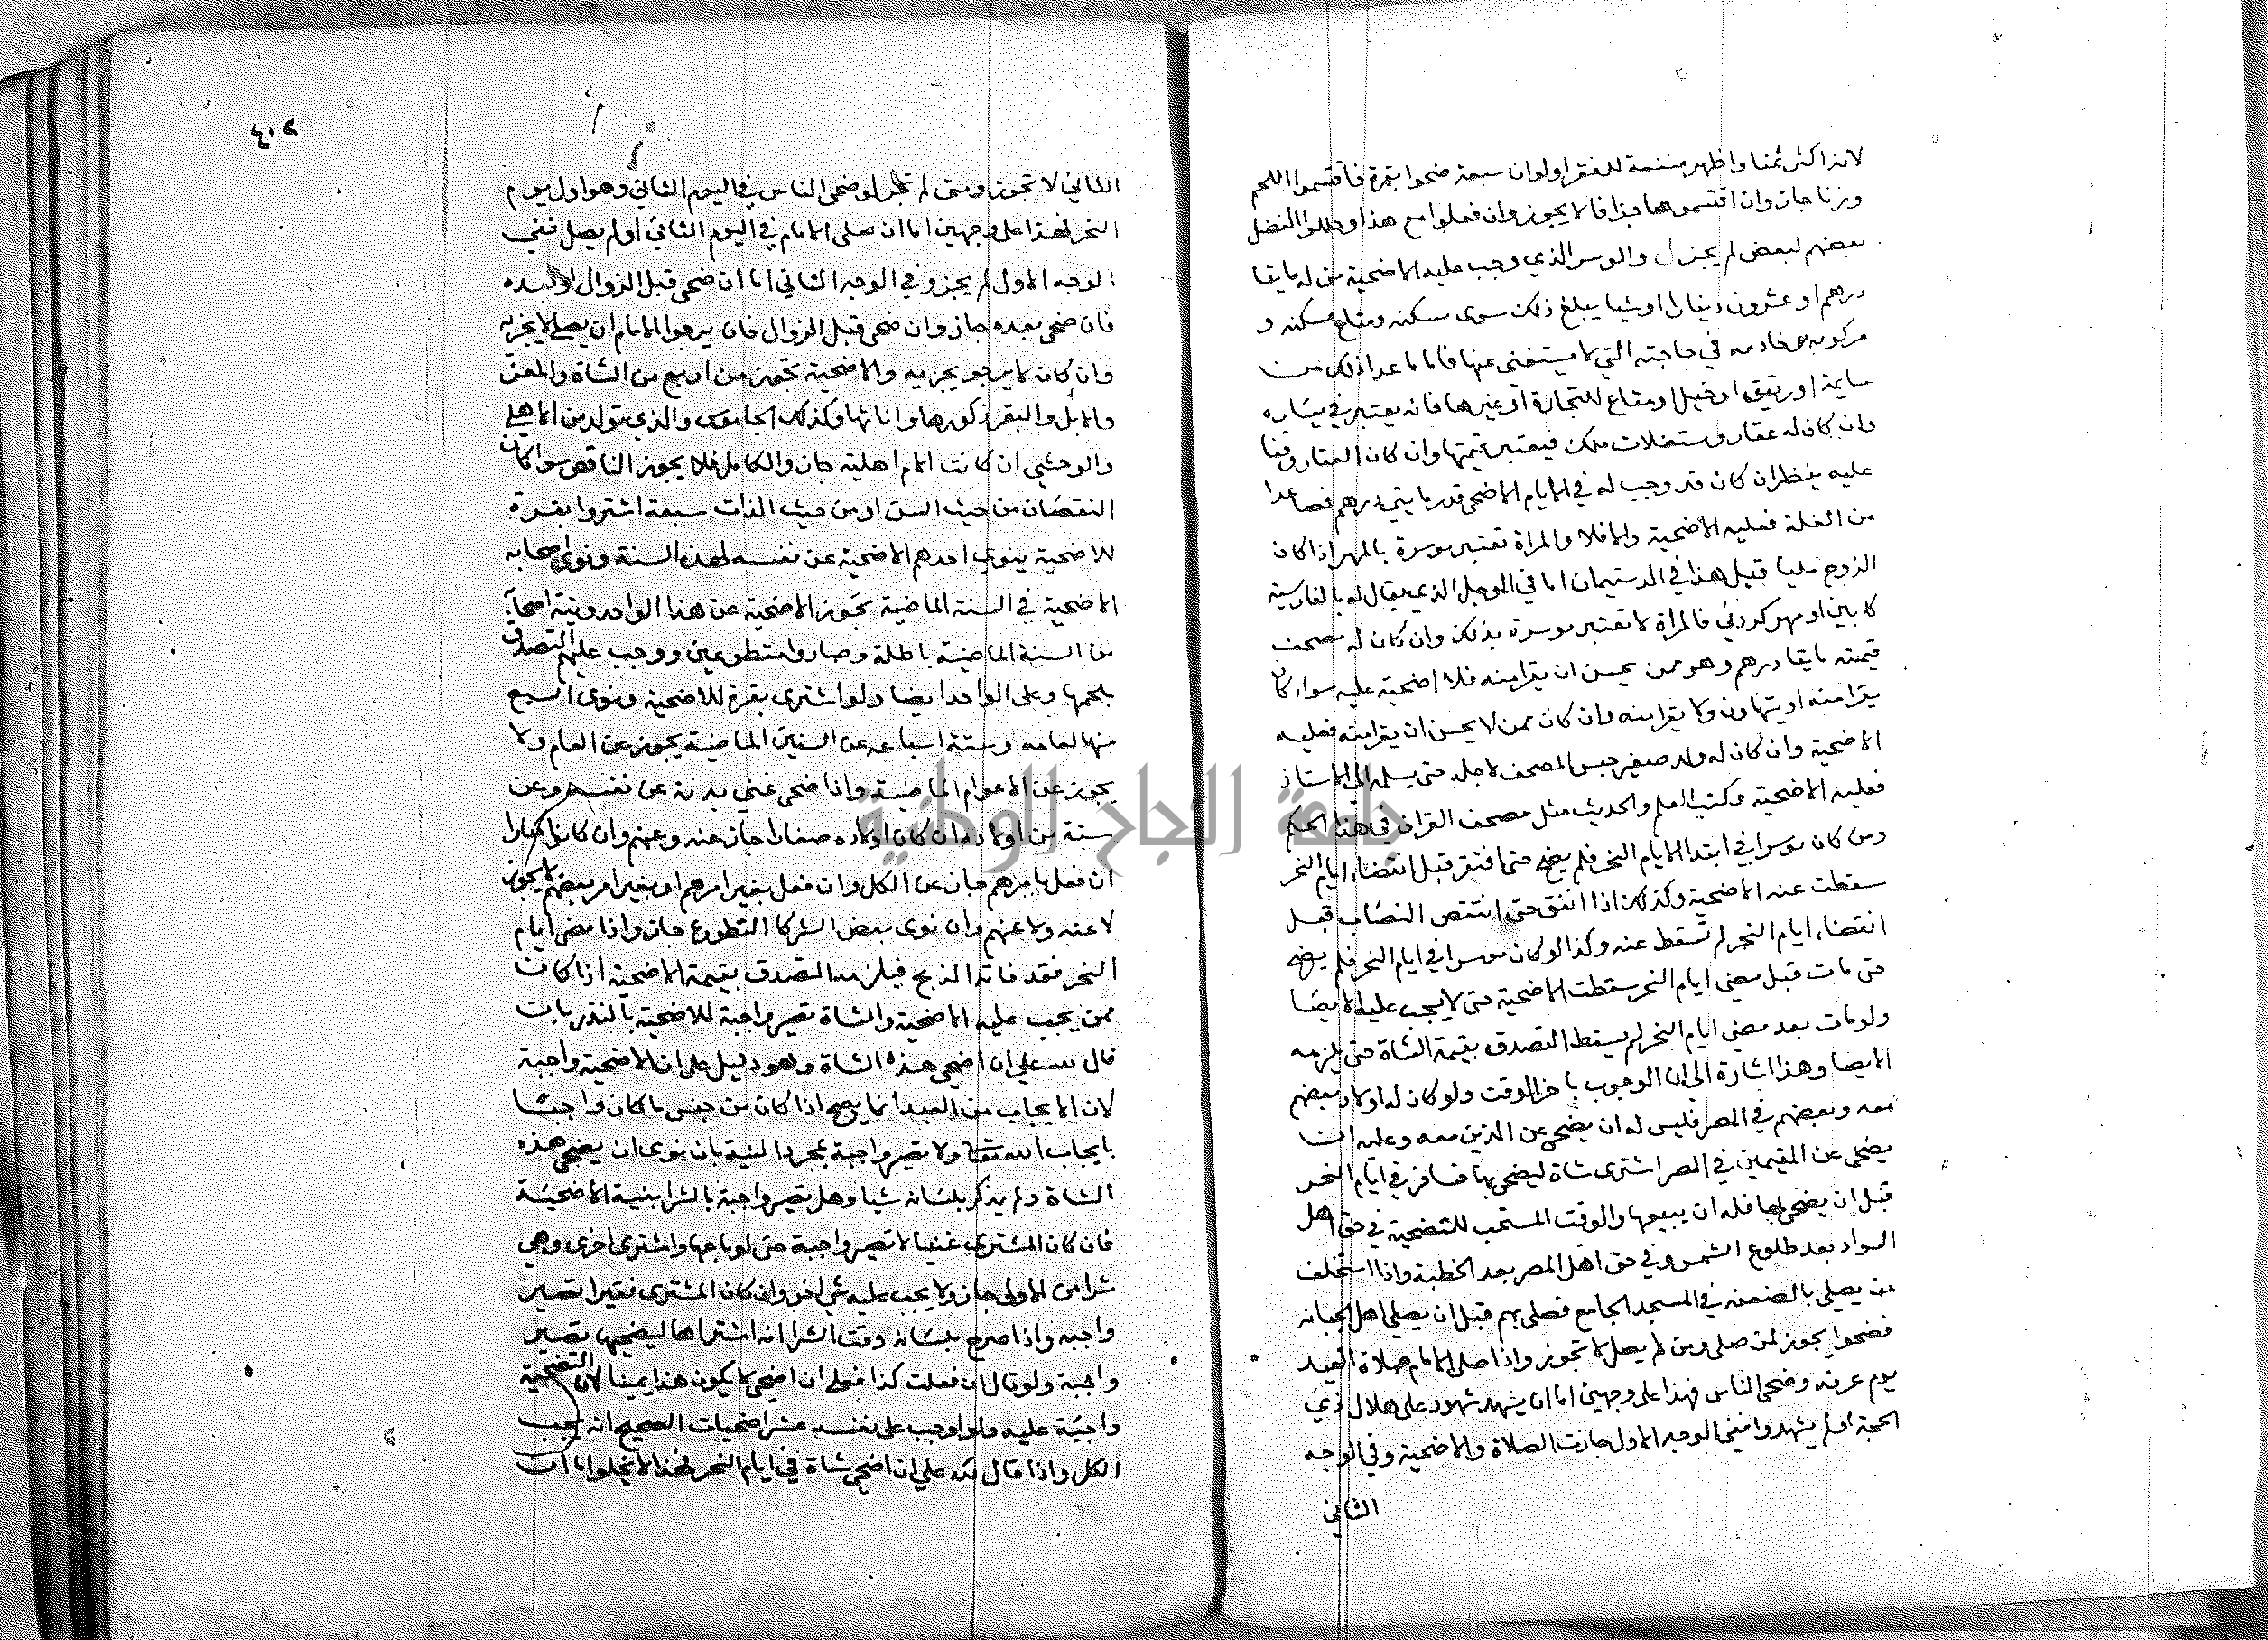 لانه اكثر ثمنا واظهر منفعة للفقرا ولو ان سبعة ضحوا بقرة فاقتسموا اللحم
وزنا جاز وان اقتسموها جزافا لا يجوز وان فعلوا مع هذا وحللوا الفضل
بعضهم لبعض لم يجز والموسر الذي وجب عليه الاضحية من له مايتا
درهم او عشرون دينارا او شيا يبلغ ذلك سوى مسكنه ومتاع مسكنه و
مركوبه وخادمه في حاجته التي لا يستغنى عنها فاما ما عدا ذلك من
سايمة او رقيق او خيل او متاع للتجارة او غيرها فانه يعتبر في يساره
وان كان له عقار ومستغلات ملك فيعتبر قيمتها وان كان العقار وقفا
عليه ينظر ان كان قد وجب له في الايام الاضحى قدر مايتي درهم فصاعدا
من الغلة فعليه الاضحية والا فلا والمراة تعتبر موسرة بالمهر اذا كان
الزوج مليا قبل هذا في الدستيمان اما في الموجل الذي يقال له بالفارسية
كابين او مهر كردني فالمراة لا تعتبر موسرة بذلك وان كان له مصحف
قيمته مايتا درهم وهو ممن يحسن ان يقرا منه فلا اضحية عليه سواء كان
يقرا منه او يتهاون ولا يقرا منه وان كان ممن لا يحسن ان يقرا منه فعليه
الاضحية وان كان له ولد صغير حبس المصحف لاجله حتى يسلمه الى الاستاذ
فعليه الاضحية وكتب العلم والحديث مثل مصحف القران في هذا الحكم
ومن كان موسرا في ابتدا الايام النحر فلم يضح حتى افتقر قبل انقضاء ايام النحر
سقطت عنه الاضحية وكذلك اذا انفق حتى انتقص النصاب قبل
انقضاء ايام النحر لم تسقط عنه وكذا لو كان موسرا في ايام النحر فلم يضح
حتى مات قبل مضي ايام النحر سقطت الاضحية حتى لا يجب عليه الايصا
ولو مات بعد مضي ايام النحر لم يسقط التصدق بقيمة الشاة حتى يلزمه
الايصا وهذا اشارة الى ان الوجوب باخر الوقت ولو كان له اولاد بعضهم
معه وبعضهم في المصر فليس له ان يضحي عن الذين معه وعليه ان
يضحي عن المقيمين في المصر اشترى شاة ليضحي بها فسافر في ايام النحر
قبل ان يضحي بها فله ان يبيعها والوقت المستحب للتضحية في حق اهل
السواد بعد طلوع الشمس وفي حق اهل المصر بعد الخطبة واذا استخلف
من يصلي بالضعفه في المسجد الجامع فصلى بهم قبل ان يصلي اهل الجبانه
فضحوا يجوز لمن صلى ومن لم يصل لا تجوز واذا صلى الامام صلاة العيد
يوم عرفه وضحى الناس فهذا على وجهين اما ان يشهد شهود على هلال ذي
الحجة او لم يشهدوا ففي الوجه الاول جازت الصلاة والاضحية وفي الوجه
الثاني
٤٠٢
الثاني لا تجوز ومتى لم تجز لو ضحى الناس في اليوم الثاني وهو اول يوم
النحر فهذا على وجهين اما ان صلى الامام في اليوم الثاني او لم يصل ففي
الوجه الاول لم يجز وفي الوجه الثاني اما ان ضحى قبل الزوال او بعده
فان ضحى بعده جاز وان ضحى قبل الزوال فان يرجوا الامام ان يصلي لا يجزيه
وان كان لا يرجو يجزيه والاضحية تجوز من اربع من الشاة والمعز
والابل والبقر ذكورها واناثها وكذلك الجاموس والذي تولد من الاهلي
والوحشي ان كانت الام اهلية جاز والكامل فلا يجوز الناقص سوا كان
النقصان من حيث السن او من حيث الذات سبعة اشتروا بقرة
للاضحية ينوي احدهم الاضحية عن نفسه لهذه السنة ونوى اصحابه
الاضحية في السنة الماضية تجوز الاضحية عن هذا الواحد ونية اصحابه
من السنة الماضية باطلة وصاروا متطوعين ووجب عليهم التصدق
بلحمها وعلى الواحد ايضا ولو اشترى بقرة للاضحية ونوى السبع
منها لعامه وستة اسباعه عن السنين الماضية يجوز عن العام ولا
يجوز عن الاعوام الماضية واذا ضحى غني بدنة عن نفسه وعن
ستة من اولاده ان كان اولاده صغارا جاز عنه وعنهم وان كانوا كبارا
ان فعل بامرهم جاز عن الكل وان فعل بغير امرهم او بغير امر بعضهم لا يجوز
لا عنه ولا عنهم وان نوى بعض الشركا التطوع جاز واذا مضى ايام
النحر فقد فاته الذبح فيلزمه التصدق بقيمة الاضحية اذا كان
ممن يجب عليه الاضحية والشاة تصير واجبة للاضحية بالنذر بان
قال لله علي ان اضحي هذه الشاة وهو دليل على ان الاضحية واجبة
لان الايجاب من العبد انما يصح اذا كان من جنس ما كان واجبا
بايجاب الله تعالى ولا تصير واجبة بمجرد النية بان نوى ان يضحي هذه
الشاة ولم يذكر بلسانه شيا وهل تصير واجبة بالشرا بنية الاضحية
فان كان المشتري غنيا لا تصير واجبة حتى لو باعها واشترى اخرى وهي
شرا من الاولى جاز ولا يجب عليه شي اخر وان كان المشتري فقيرا تصير
واجبه واذا صرح بلسانه وقت الشرا انه اشتراها ليضحيها تصير
واجبة ولو قال ان فعلت كذا فعلي ان اضحي لا يكون هذا يمينا لان التضحية
واجبة عليه ولو اوجب على نفسه عشر اضحيات الصحيح انه يجب
الكل واذا قال لله علي ان اضحي شاة في ايام النحر فهذا لا يخلوا اما ان
جامعة النجاح الوطنية